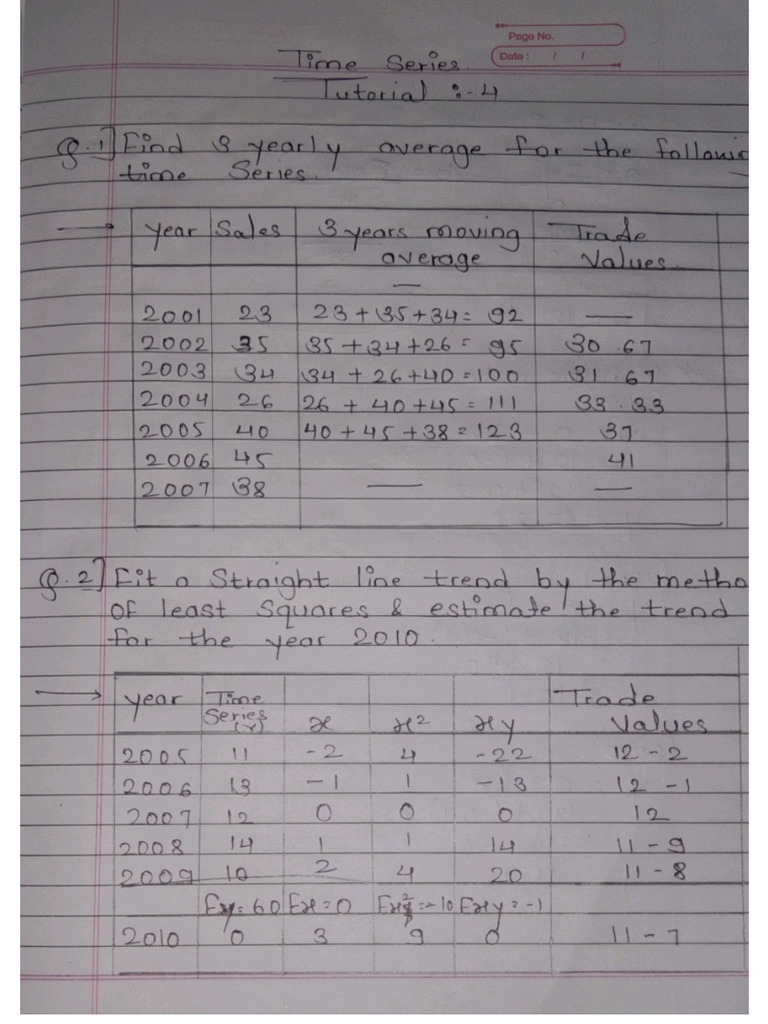 Page No.
Date: / /
Time Series
Tutorial :- 4
Q.1] Find 3 yearly average for the followin
time Series.
→ year Sales 3 years moving average Trade Values
—
2001 23 23+35+34= 92 —
2002 35 35+34+26= 95 30.67
2003 34 34+26+40=100 31.67
2004 26 26+40+45=111 33.33
2005 40 40+45+38=123 37
2006 45 41
2007 38 — —
Q.2] Fit a Straight line trend by the metho
of least squares & estimate the trend
for the year 2010.
→ year Time Series (Y) x x² xy Trade Values
2005 11 -2 4 -22 12-2
2006 13 -1 1 -13 12-1
2007 12 0 0 0 12
2008 14 1 1 14 11-9
2009 10 2 4 20 11-8
Ey=60 Ex=0 Ex²=-10 Exy=-1
2010 0 3 9 0 11-7